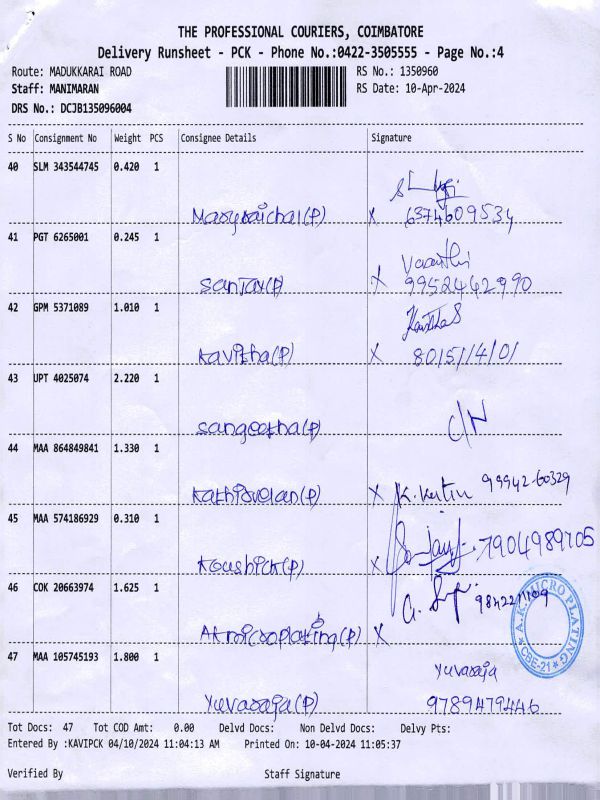 THE PROFESSIONAL COURIERS, COIMBATORE
Delivery Runsheet - PCK - Phone No.:0422-3505555 - Page No.:4
Route: MADUKKARAI ROAD RS No.: 1350960
Staff: MANIMARAN RS Date: 10-Apr-2024
DRS No.: DCJB135096004
S No Consignment No Weight PCS Consignee Details Signature
40 SLM 343544745 0.420 1
x 6374609534
41 PGT 6265001 0.245 1
Vasanthi
Sanjay(P) x 9952442990
42 GPM 5371089 1.010 1
Kavitha S
Kavitha(P) x 8015114101
43 UPT 4025074 2.220 1
Sangeetha(P) C/N
44 MAA 864849841 1.330 1
Kathirvelan(P) x 99942-60329
45 MAA 574186929 0.310 1
Koushick(P) x 7904989705
46 COK 20663974 1.625 1
AK microplating(P) x
A.K. MICRO PLATING
CBE-21
47 MAA 105745193 1.800 1
Yuvaraja
Yuvaraja(P) 9789479446
Tot Docs: 47 Tot COD Amt: 0.00 Delvd Docs: Non Delvd Docs: Delvy Pts:
Entered By :KAVIPCK 04/10/2024 11:04:13 AM Printed On: 10-04-2024 11:05:37
Verified By Staff Signature